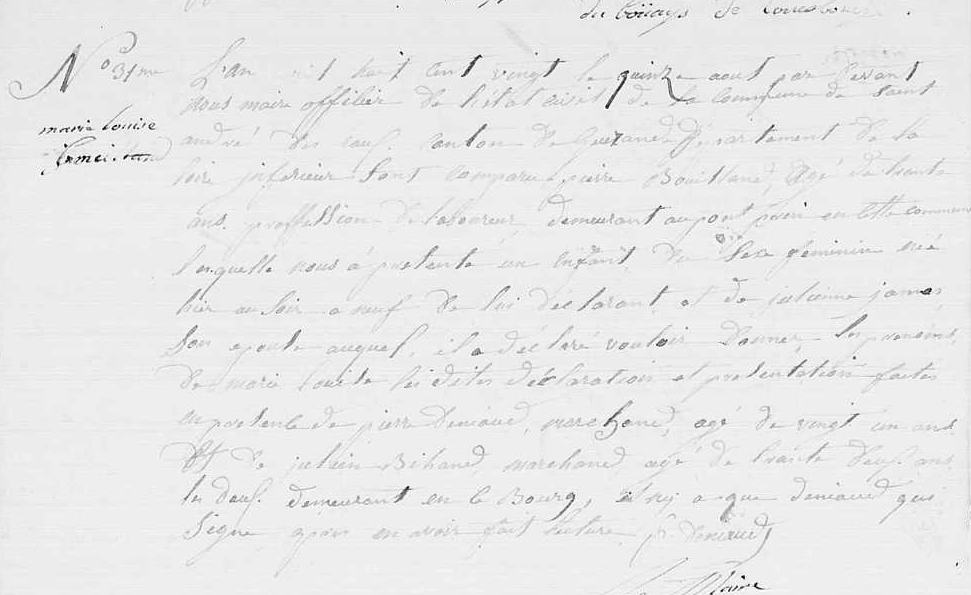 du de
N° 31me L'an mil huit cent vingt le quinze aout par devant
nous maire officier de l'état civil de la commune de Saint
marie louise
andré des eaux canton de guerande Département de la
loire inferieur Sont comparu pierre Agé de trante
ans. proffession de laboureur demeurant au pont en cette commune
lesquelle nous á presenté un enfant du Sexe féminin née
hier au soir a neuf de lui déclarant et de julienne james
Son epouse auquel il a déclaré vouloir donner les prenoms
De marie louise les dites déclaration et presentation faites
en presence de pierre Deniaud, marchand, agé de vingt un ans
Et de julien Bihand marchand agé de trante deux ans
les deux demeurant en ce Bourg, et ny a que deniaud qui
Signe apres en avoir fait lecture p. Deniaud
Le Maire